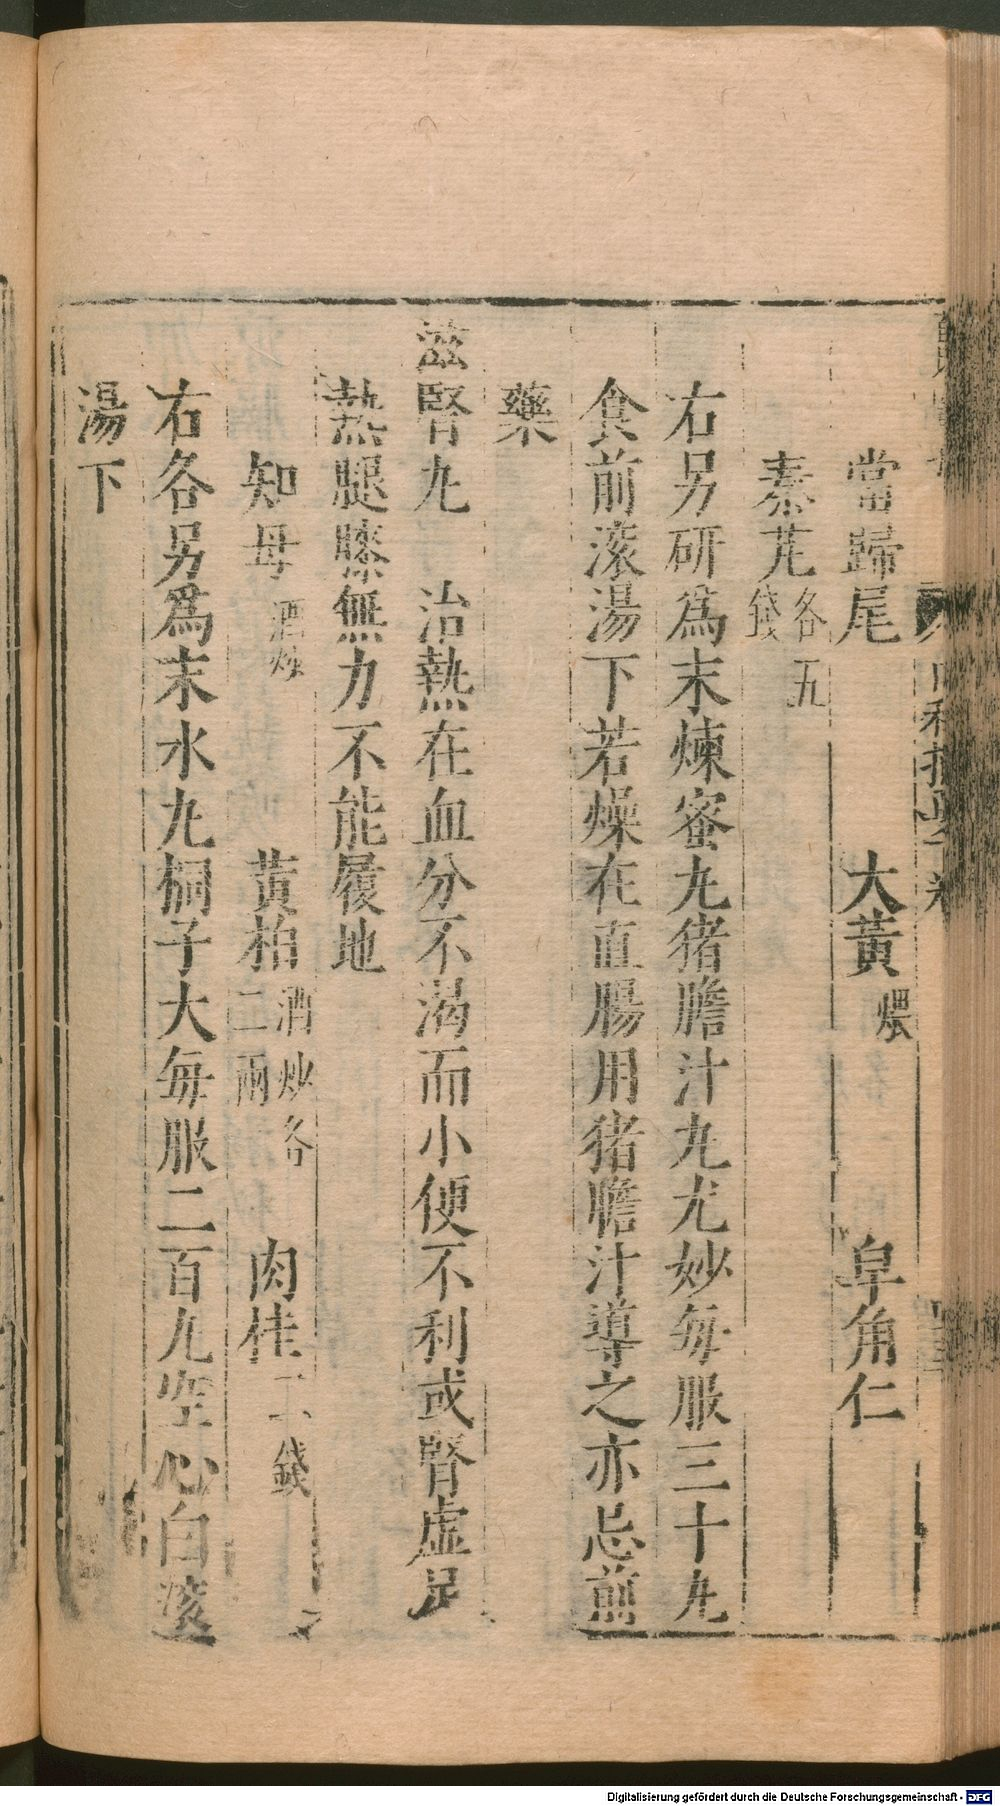 當歸尾 大黃煨 皁角仁
秦芃各五錢
右另研爲末煉蜜九猪膽汁九尤妙每服三十九
食前滚湯下若燥在直腸用猪膽汁導之亦忌前
藥
滋腎九 治熱在血分不渴而小便不利或腎虛足
熱腿膝無力不能履地
知母酒炒 黃柏酒炒各二兩 肉桂二錢
右各另爲末水九桐子大每服二百九空心白滚
湯下
Digitalisierung gefördert durch die Deutsche Forschungsgemeinschaft - DFG